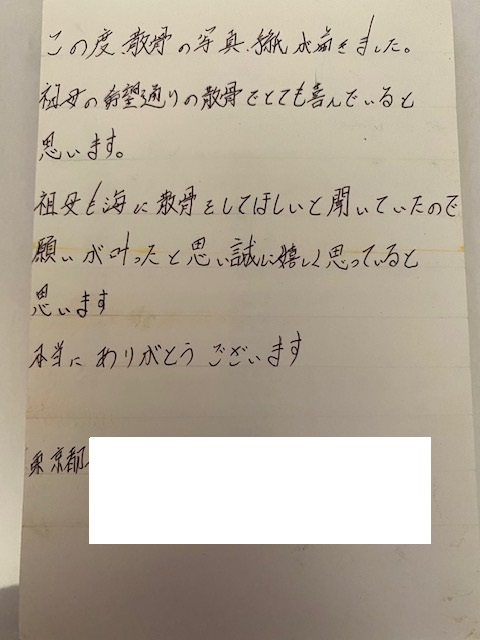 この度、散骨の写真、手紙が届きました。
祖母の希望通りの散骨でとても喜んでいると
思います。
祖母も海に散骨をしてほしいと聞いていたので
願いが叶ったと思い誠に嬉しく思っていると
思います
本当にありがとうございます
東京都